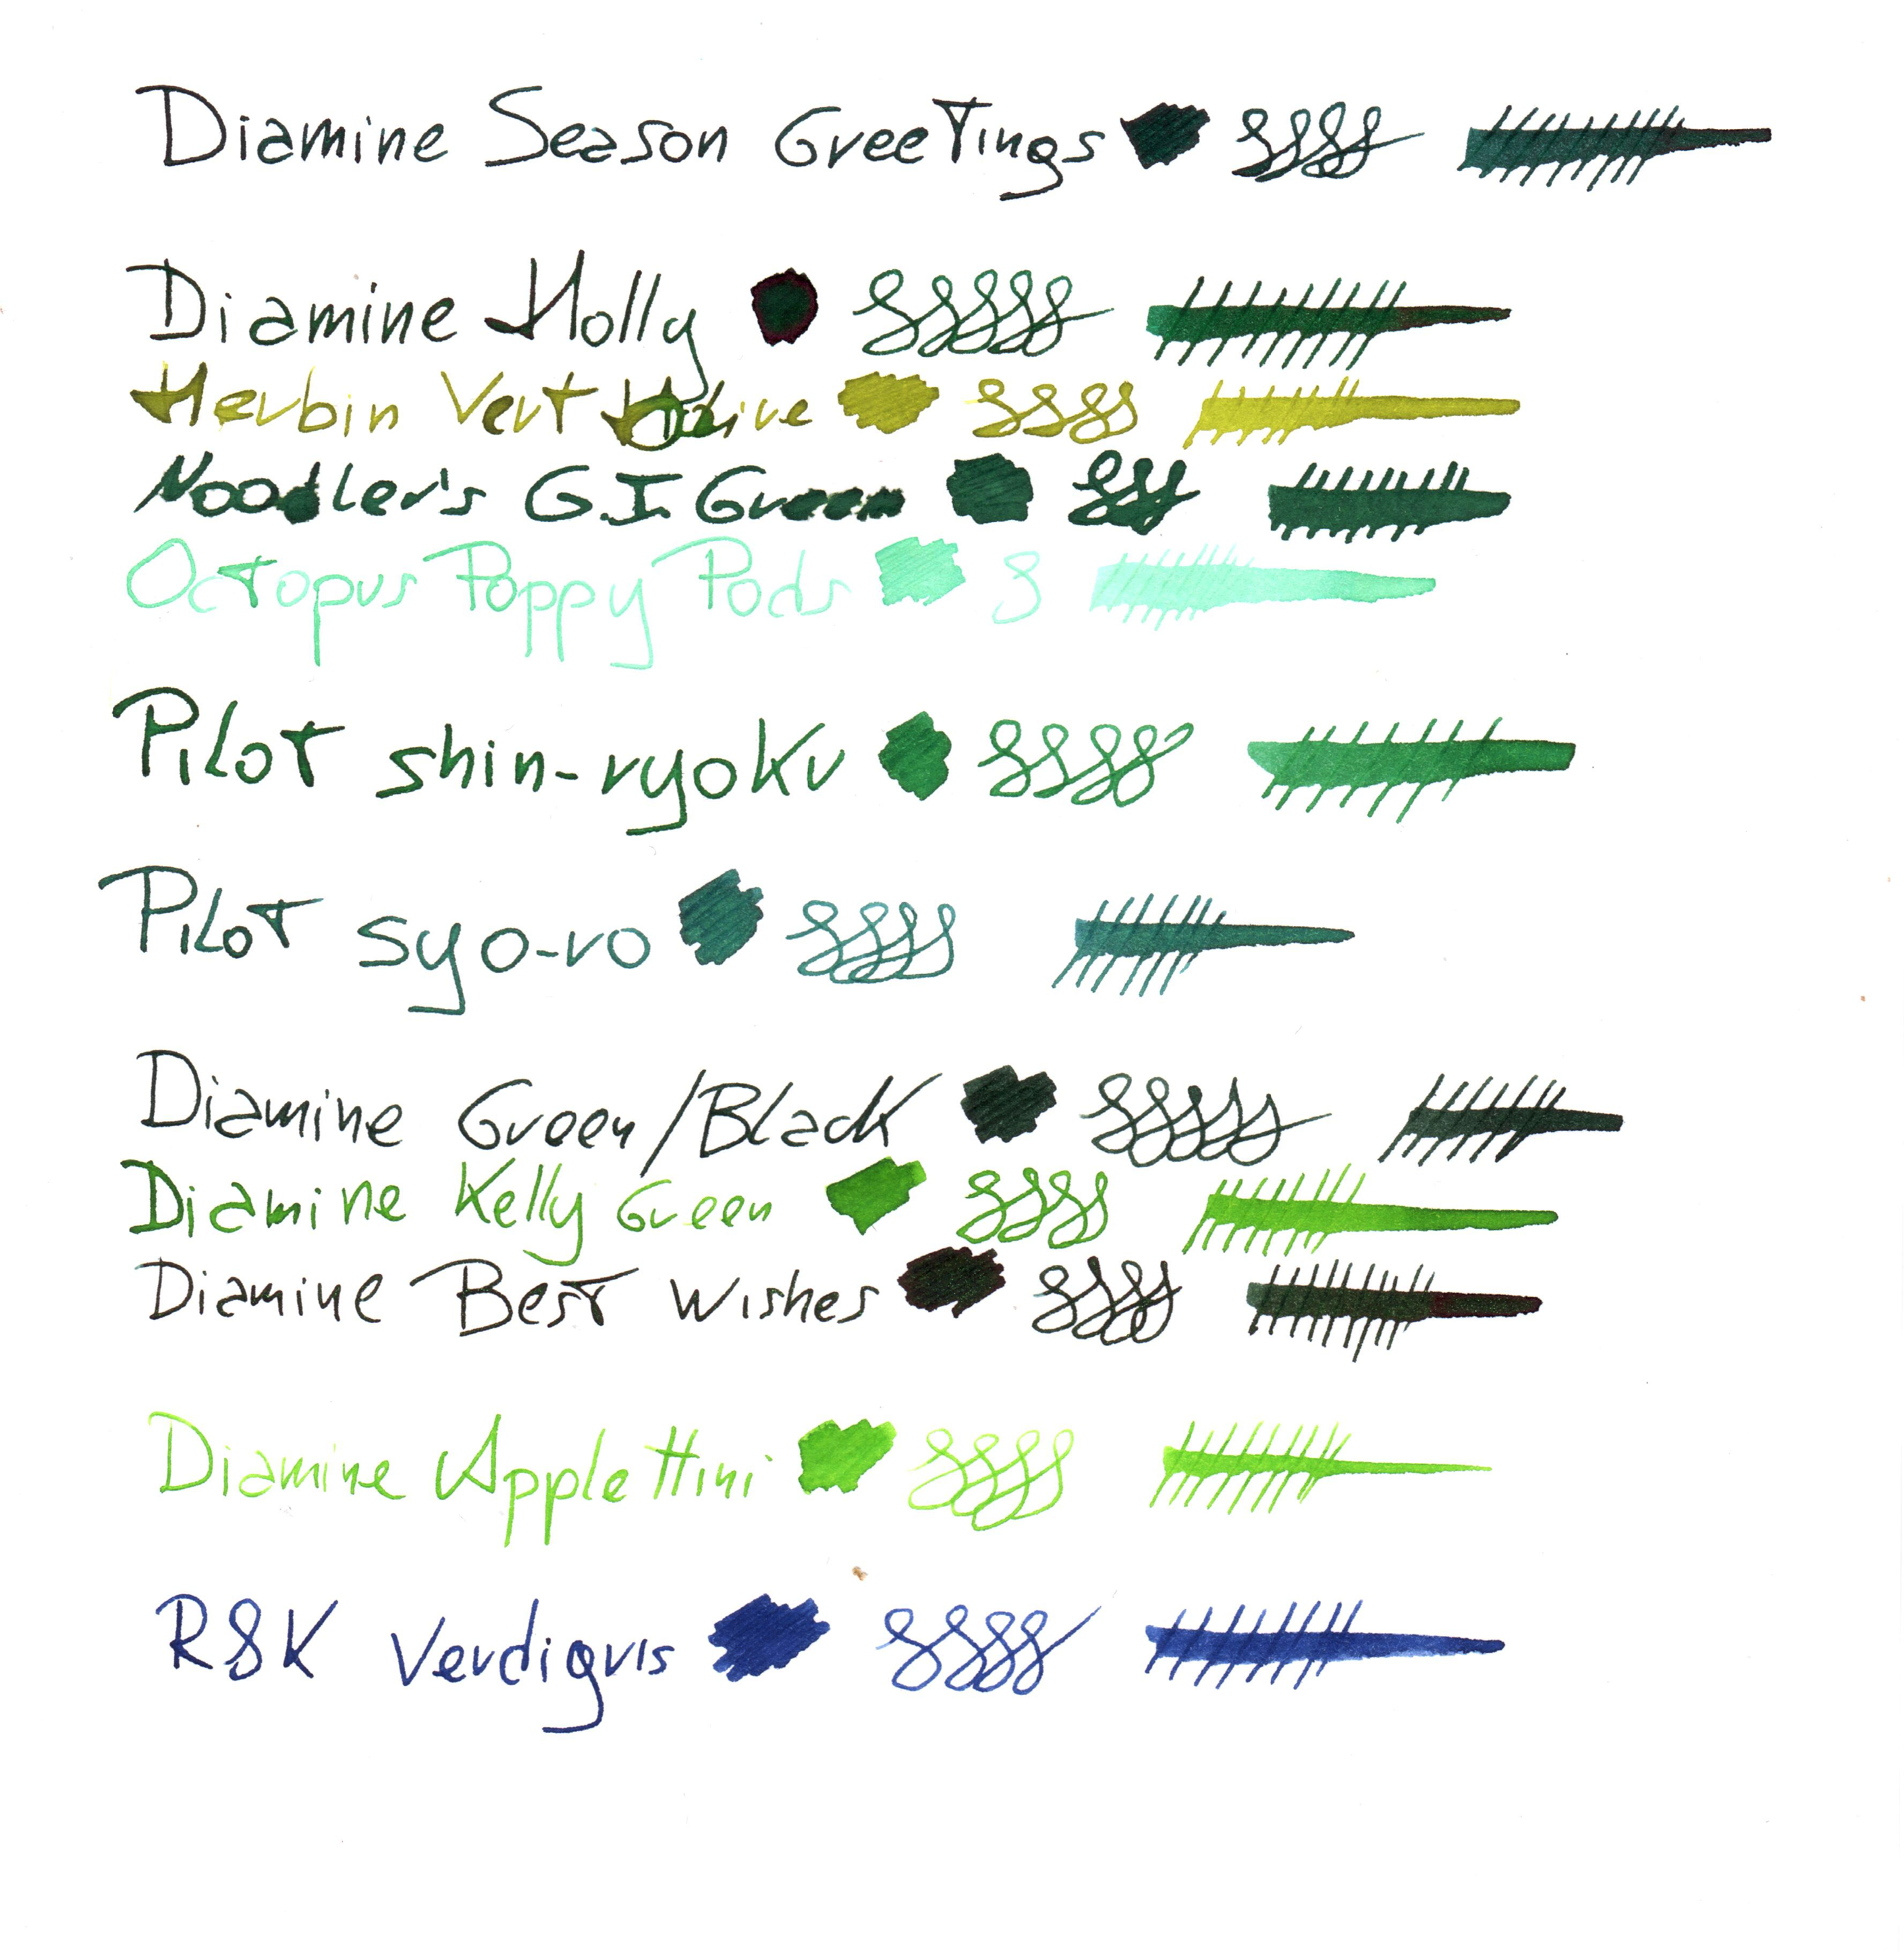 Diamine Season Greetings
Diamine Holly
Herbin Vert Olive
Noodler's G.I. Green
Octopus Poppy Pods
Pilot shin-ryoku
Pilot syo-ro
Diamine Green/Black
Diamine Kelly Green
Diamine Best Wishes
Diamine Applettini
R&K Verdigris